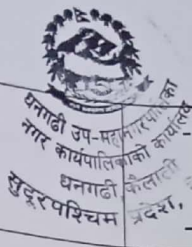 धनगढी उप-महानगरपालिका
नगर कार्यपालिकाको कार्यालय
धनगढी कैलाली
सुदूरपश्चिम प्रदेश,